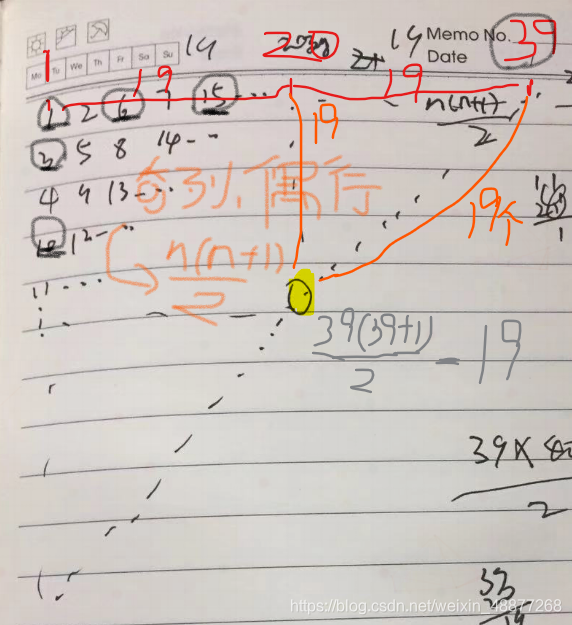 14 2020 14 Memo No. 39
Date
Mo Tu We Th Fr Sa Su
1 19 19
1 2 6 7 15 ... n(n+1)/2
3 5 8 14 ... 19
4 9 13 ... 奇列,偶行 19个
10 12 ...
n(n+1)/2
11 ...
39(39+1)/2 - 19
39×
2
https://blog.csdn.net/weixin_48877268